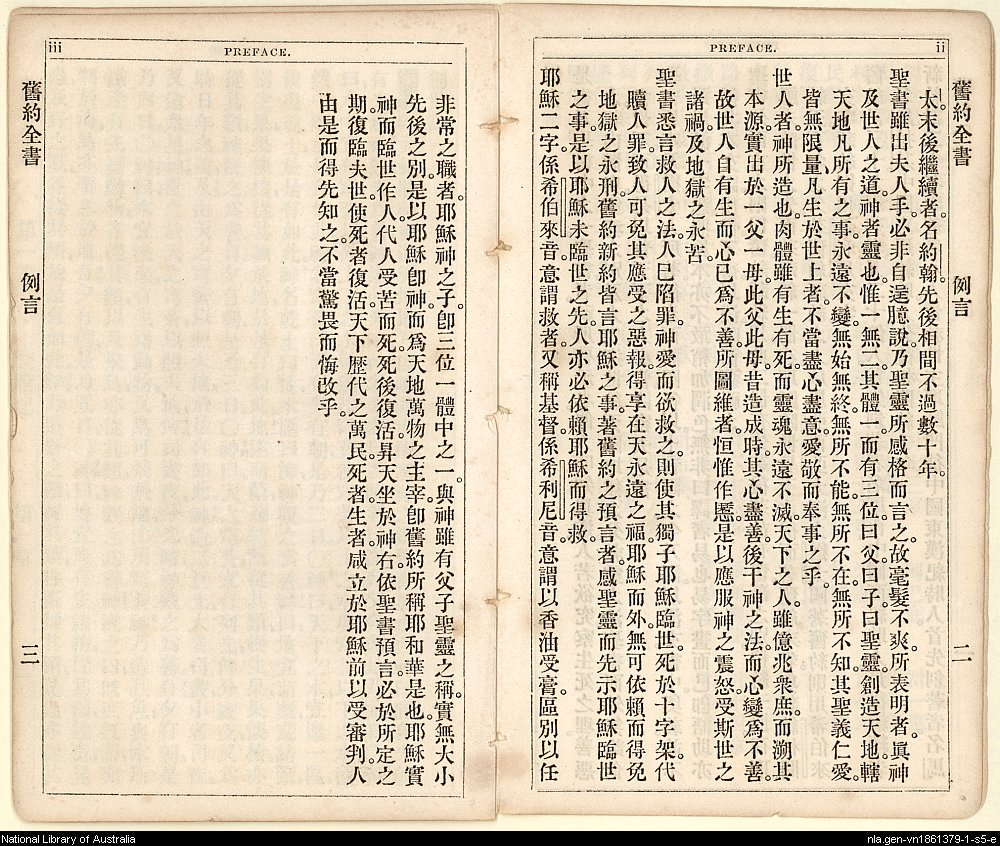 PREFACE.
ii
舊約全書
例言
二
太末後繼續者名約翰。先後相間不過數十年。
聖書雖出夫人手。必非自逞臆說。乃聖靈所感格而言之。故毫髮不爽。所表明者。眞神
及世人之道。神者靈也。惟一無二。其體一而有三位。曰父曰子曰聖靈。創造天地。轄
天地凡所有之事。永遠不變。無始無終。無所不能。無所不在。無所不知。其聖義仁愛。
皆無限量。凡生於世上者。不當盡心盡意愛敬而奉事之乎。
世人者。神所造也。肉體雖有生有死。而靈魂永遠不滅。天下之人。雖億兆衆庶。而溯其
本源。實出於一父一母。此父此母。昔造成時。其心盡善。後干神之法。而心變爲不善。
故世人自有生而心已爲不善。所圖維者。恒惟作慝。是以應服神之震怒。受斯世之
諸禍。及地獄之永苦。
聖書悉言救人之法。人已陷罪。神愛而欲救之。則使其獨子耶穌臨世。死於十字架。代
贖人罪。致人可免其應受之惡報。得享在天永遠之福。耶穌而外。無可依賴而得免
地獄之永刑。舊約新約。皆言耶穌之事。著舊約之預言者。感聖靈而先示耶穌臨世
之事。是以耶穌未臨世之先。人亦必依賴耶穌而得救。
耶穌二字。係希伯來音。意謂救者。又稱基督。係希利尼音。意謂以香油受膏。區別以任
PREFACE.
iii
非常之職者。耶穌神之子。卽三位一體中之一。與神雖有父子聖靈之稱。實無大小
先後之別。是以耶穌卽神。而爲天地萬物之主宰。卽舊約所稱耶和華是也。耶穌實
神而臨世作人。代人受苦而死。死後復活昇天。坐於神右。依聖書預言。必於所定之
期。復臨夫世。使死者復活。天下歷代之萬民。死者生者。咸立於耶穌前以受審判。人
由是而得先知之。不當驚畏而悔改乎。
舊約全書
例言
三
National Library of Australia
nla.gen-vn1861379-1-s5-e